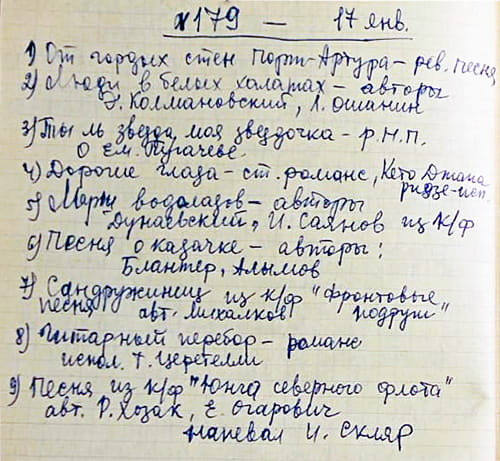 №179 — 17 янв.
1) От гордых стен Порт-Артура – рев. песня
2) Люди в белых халатах – авторы
Э. Колмановский, Л. Ошанин
3) Ты ль звезда моя звездочка – р.н.п.
о Ем. Пугачеве.
4) Дорогие глаза – ст. романс, Кето Джапа
ридзе-исп.
5) Марш водолазов – авторы
Дунаевский, И. Саянов из к/ф
6) Песня о казачке – авторы:
Блантер, Алымов
7) Сандружиниц из к/ф "Фронтовые
песня авт. Михалков подруги"
8) Гитарный перебор – романс
испол. Т. Церетелли
9) Песня из к/ф "Юнга северного флота"
авт. Р. Хозак, Е. Огарович
напевал И. Скляр